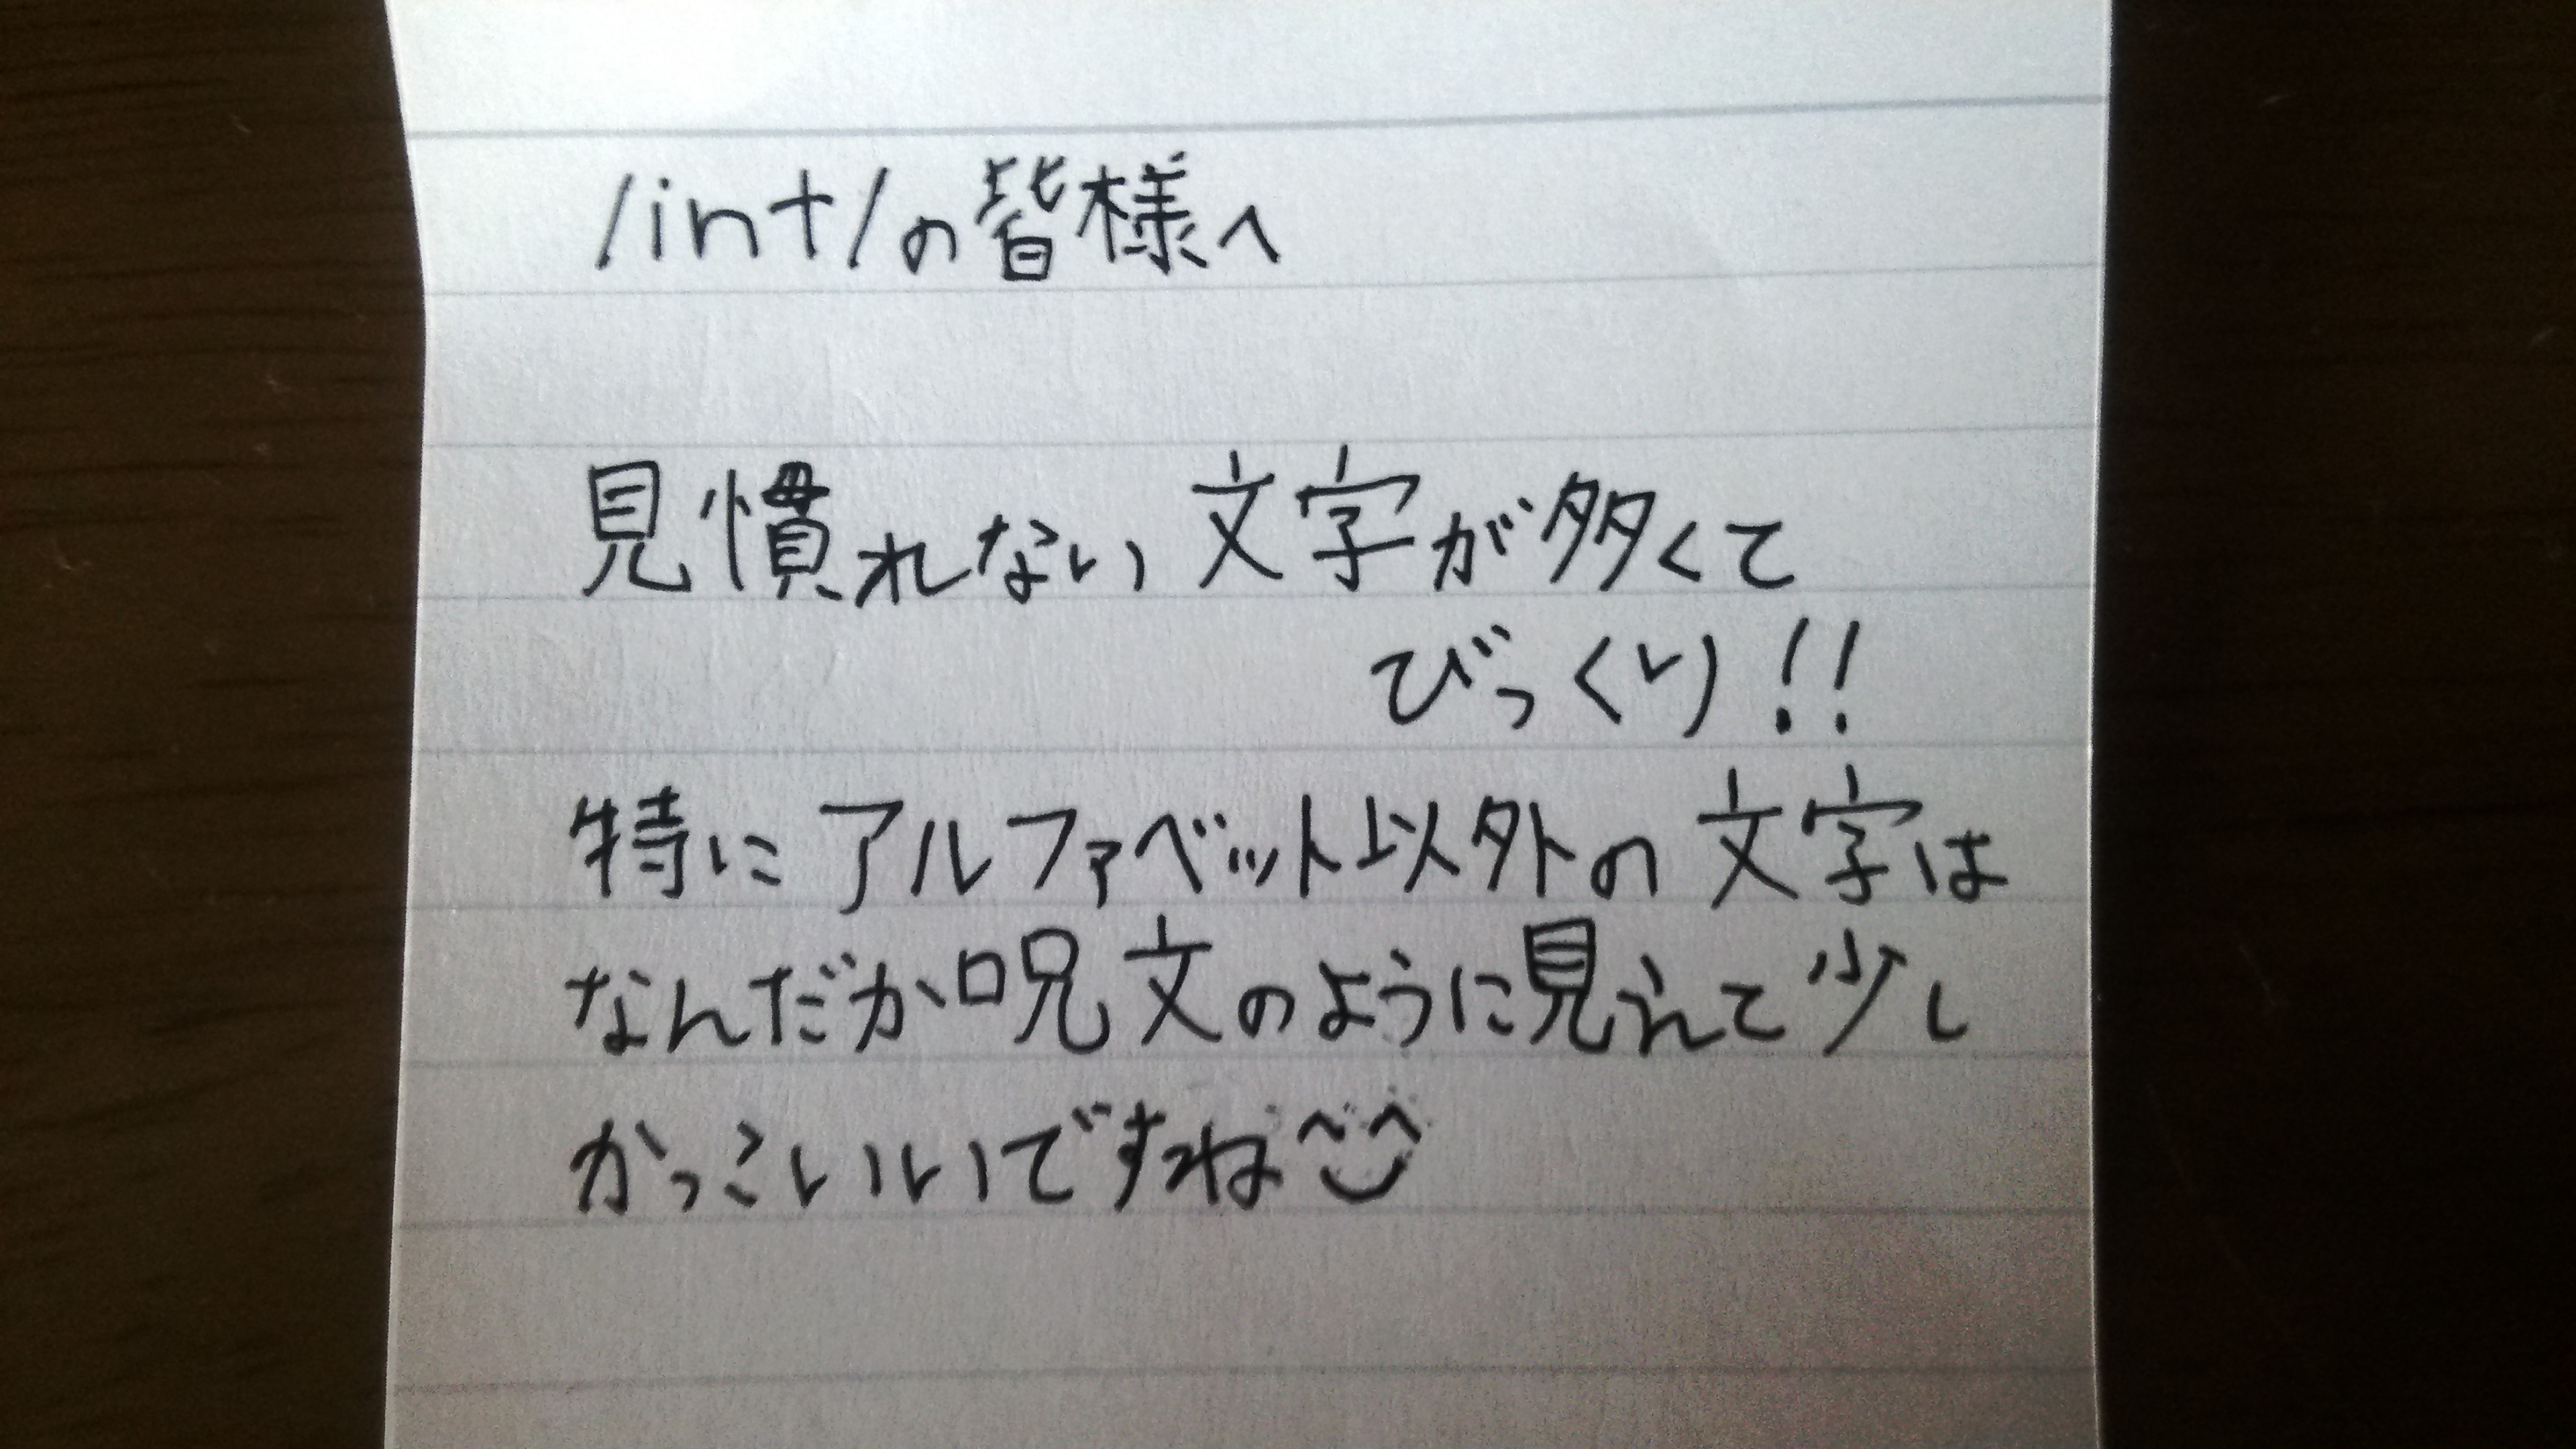 /int/の皆様へ
見慣れない文字が多くて
びっくり!!
特にアルファベット以外の文字は
なんだか呪文のように見えて少し
かっこいいですね^‿^